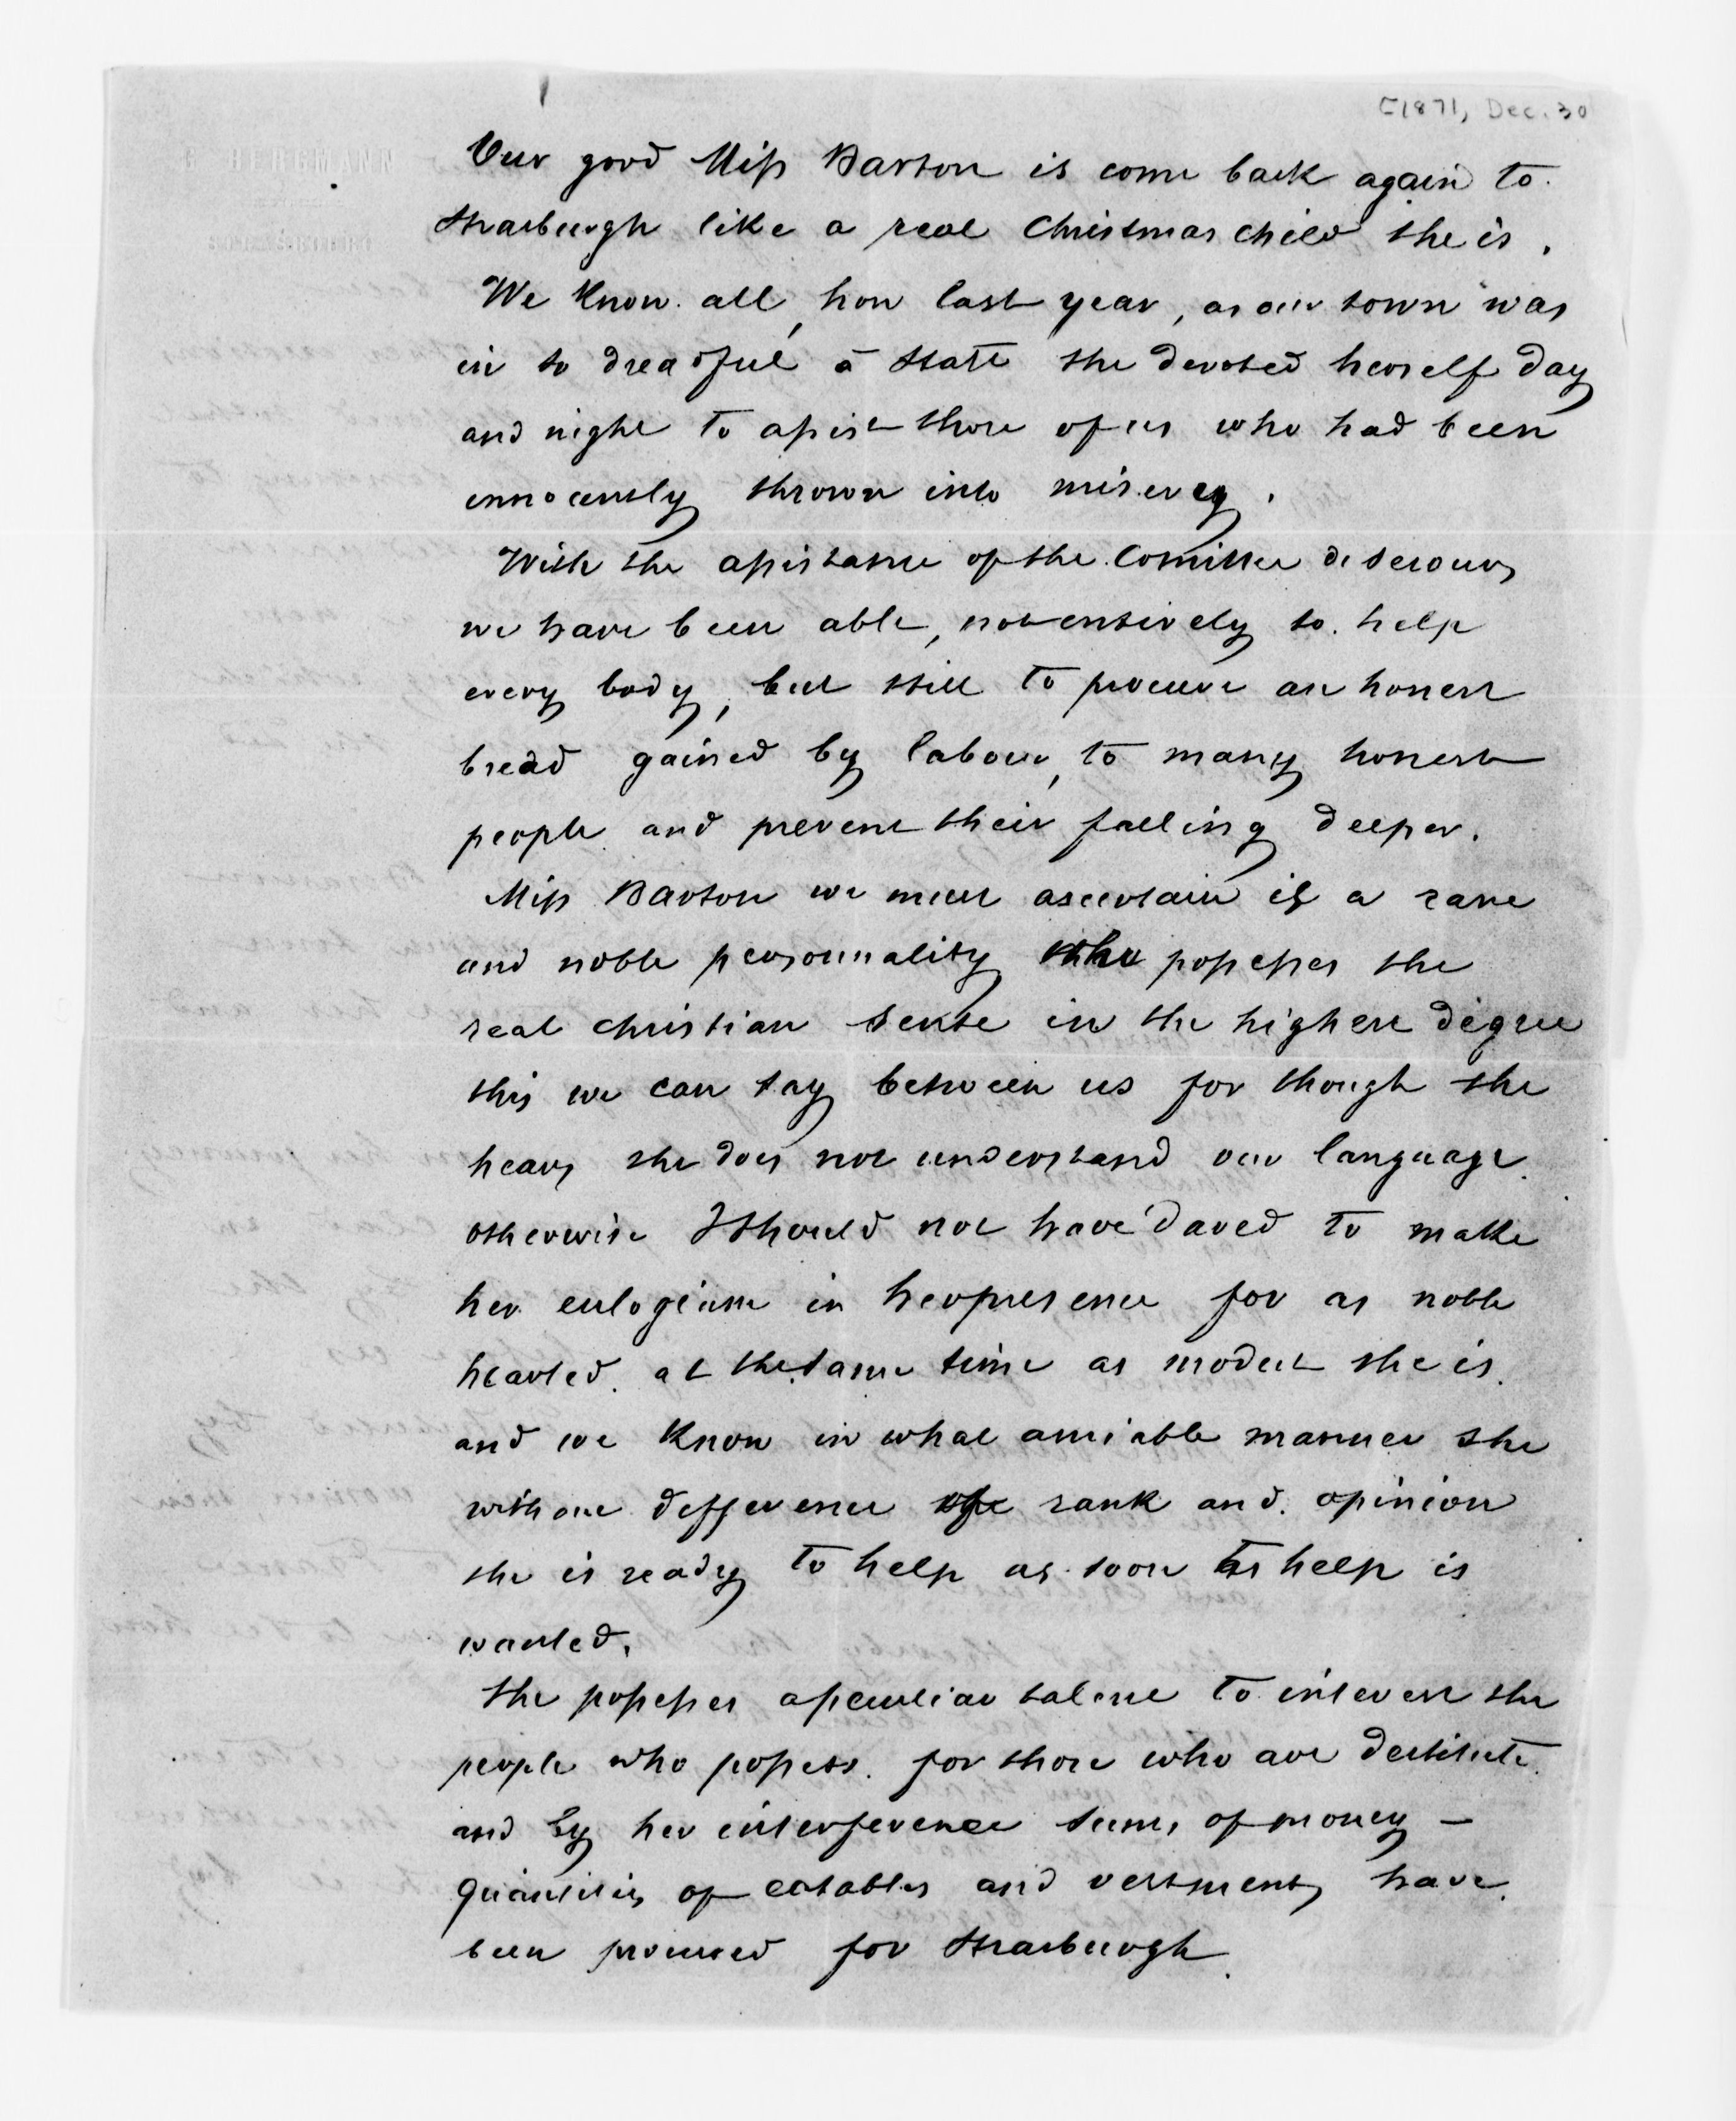 [1871, Dec. 30
G. BERGMANN
Our good Miss Barton is come back again to
Strasburgh like a real Christmas child she is.
We know all, how last year, as our town was
in so dreadful a state she devoted herself day
and night to assist those of us who had been
innocently thrown into misery.
With the assistance of the Comittee de secours
we have been able, not entirely to help
every body, but still to procure an honest
bread gained by labour, to many honest
people and prevent their falling deeper.
Miss Barton we must ascertain is a rare
and noble personnality who possesses the
real christian sense in the highest degree
this we can say between us for though she
hears she does not understand our language.
otherwise I should not have dared to make
her eulogium in her presence for as noble
hearted at the same time as modest she is.
and we know in what amiable manner she
without defference of rank and opinion
she is ready to help as soon as help is
wanted.
She possesses a peculiar talent to interest the
people who possess for those who are destitute.
and by her interference sums of money —
quantities of eatables and vestments have
been procured for Strasburgh.